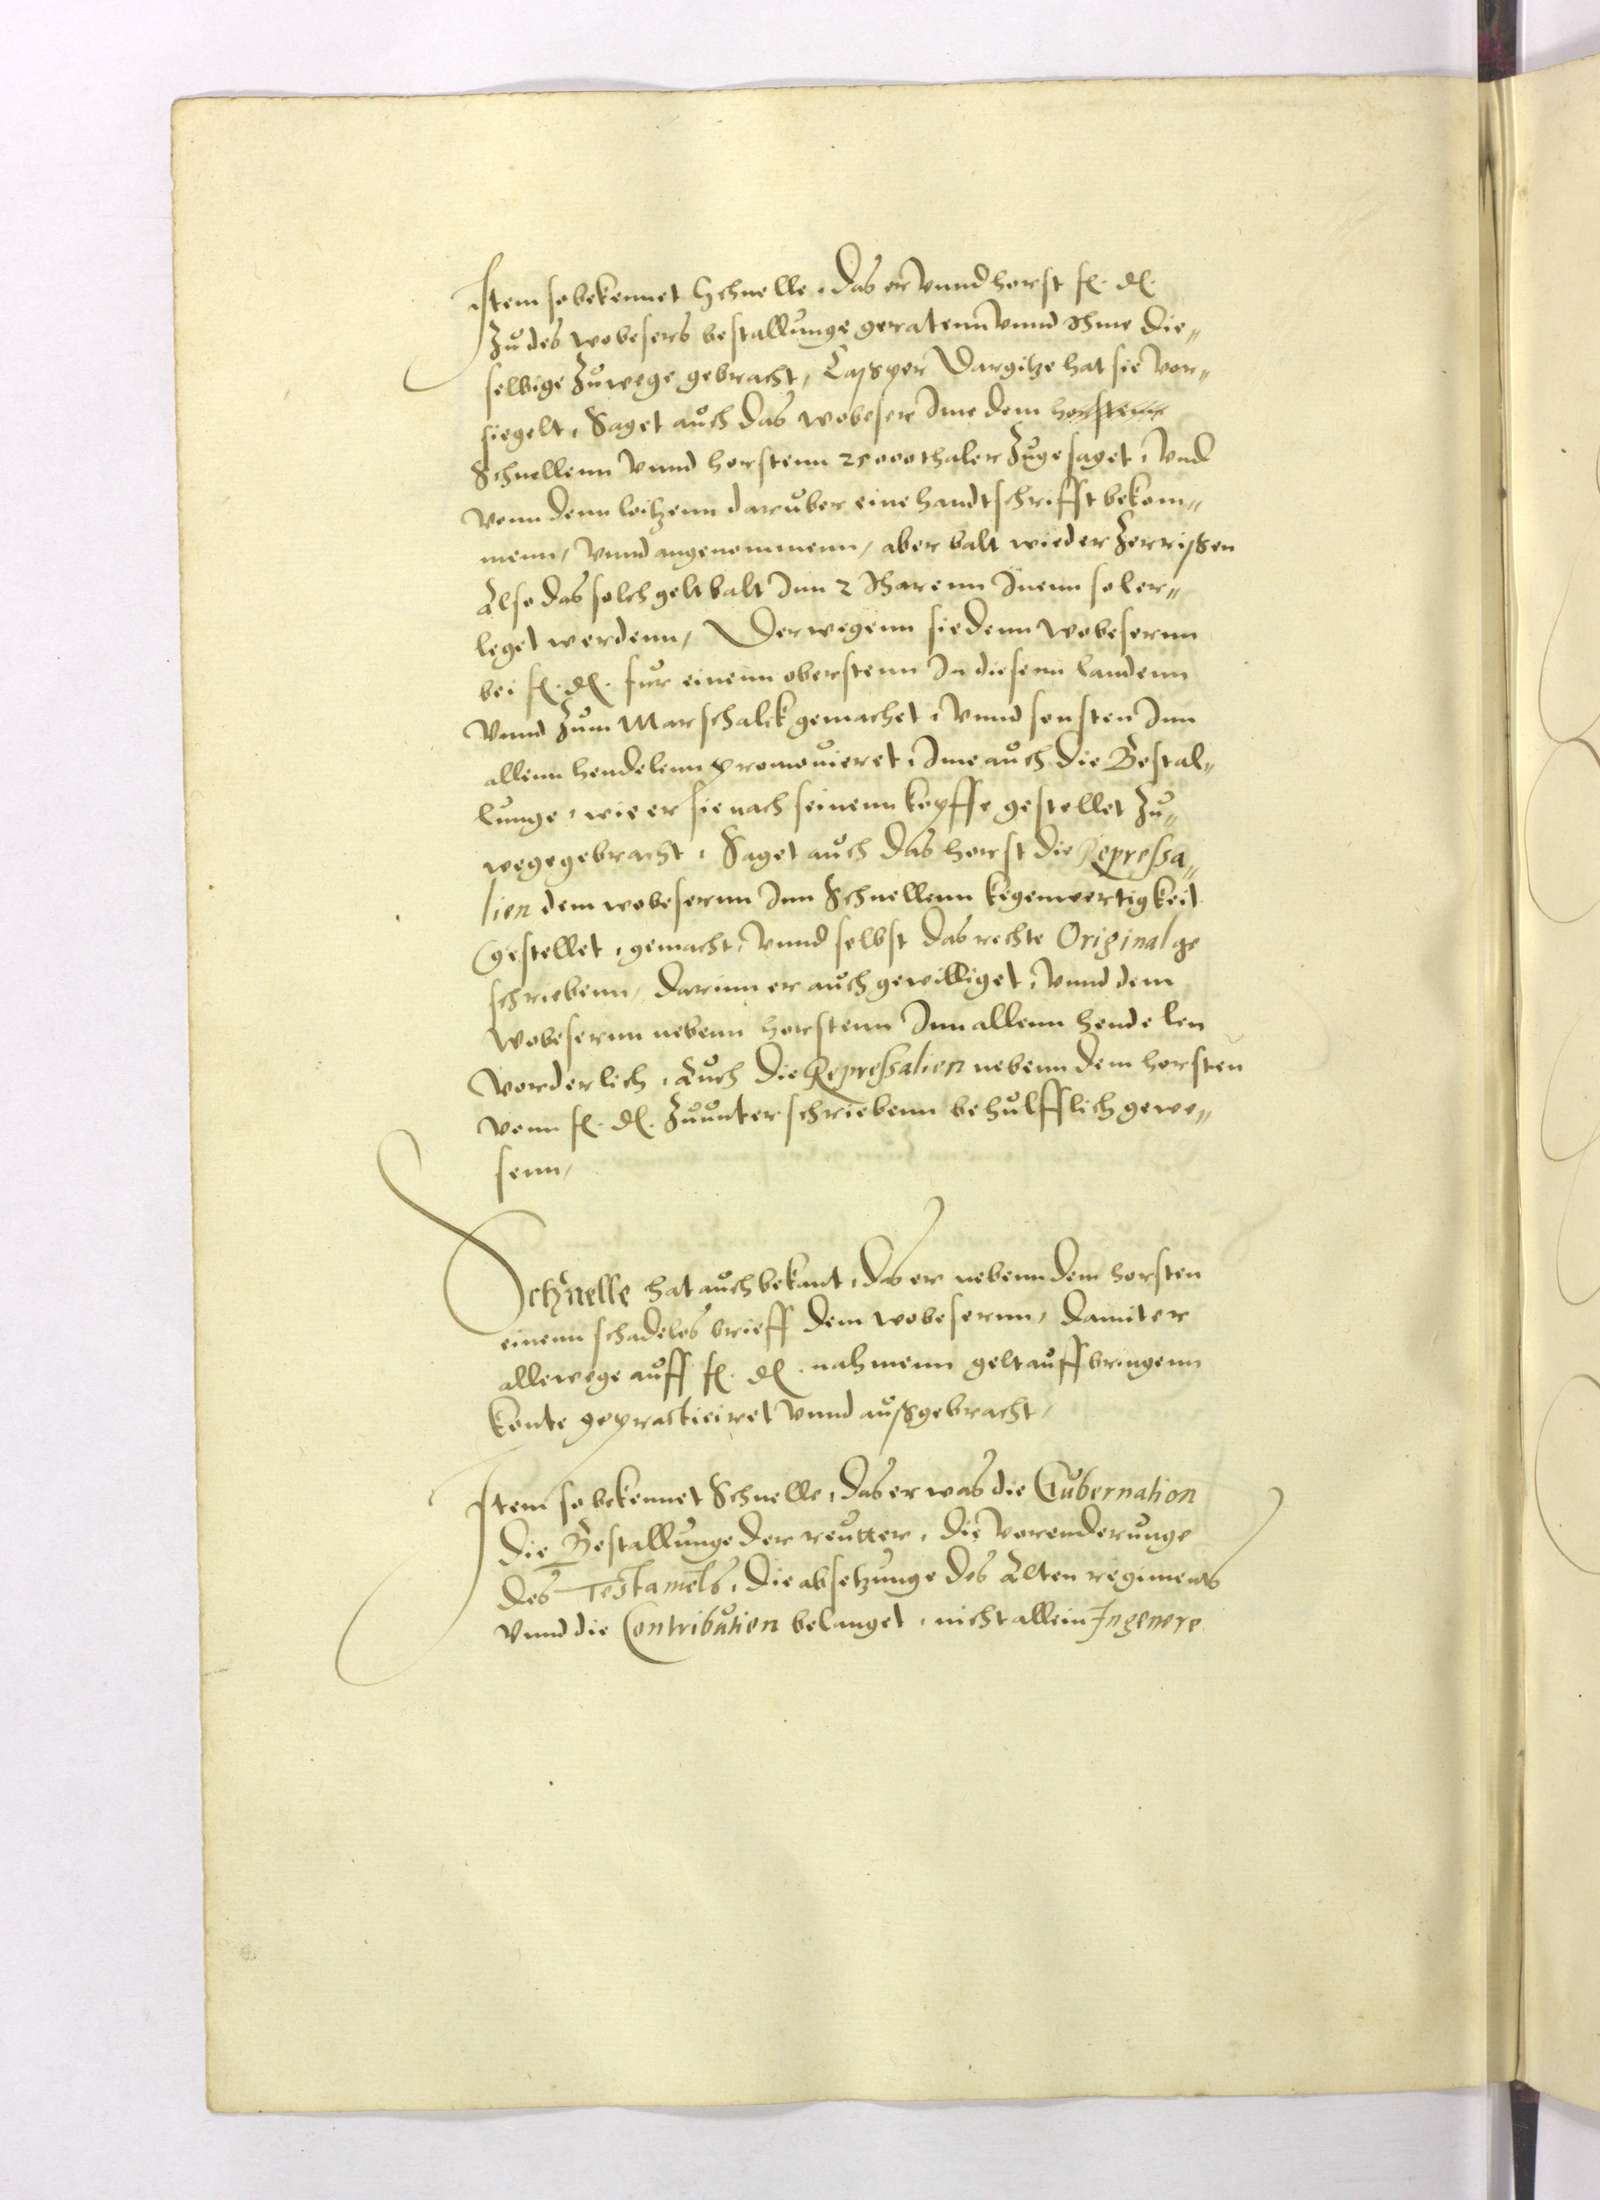 Item so bekennet Schnelle, das er vnnd horst f. d.
Zu des wobesers bestallunge geratenn vnnd Ihme die„
selbige Zuwege gebracht, Casper Dargitze hat sie vor„
siegelt, Saget auch das wobeser Ime dem horstenn
Schnellenn vnnd horstenn 25000 thaler Zugesaget, vnd
vonn denn leitzenn daruber eine handtschrifft bekom„
menn, vnnd angenommenn, aber balt wieder Zerrißen
Also das solch gelt balt Inn 2 Iharenn Inenn sol er„
leget werdenn, Derwegenn sie denn wobesernn
bei f. d. fur einenn oberstenn In diesenn landenn
vnnd Zum Marschalck gemachet, vnnd sonsten Inn
allenn hendelenn promouieret, Ime auch die Bestal„
lunge, wie er sie nach seinenn kopffe gestellet Zu„
wege gebracht, Saget auch das horst die Repressa„
lien dem wobesernn Inn Schnellenn kegenwertigkeit
gestellet, gemacht, vnnd selbst das rechte Original ge
schriebenn, darinn er auch gewilliget, vnnd dem
wobesernn nebenn horstenn Inn allenn hendelen
vorderlich, Auch die Repressalien nebenn dem horsten
vonn f. d. Zuunterschriebenn behulfflich gewe„
senn,
Schnelle hat auch bekant, das er nebenn dem horsten
einenn schadelos brieff dem wobesernn, damit er
allewege auff f. d. nahmenn gelt auffbringenn
konte gepractieiret vnnd außgebracht,
Item so bekennet Schnelle, das er was die Gubernation
die Bestallunge der reutter, die vorenderunge
des Testamets, die absetzunge des Alten regiments
vnnd die Contribution belanget, nicht allein In genere